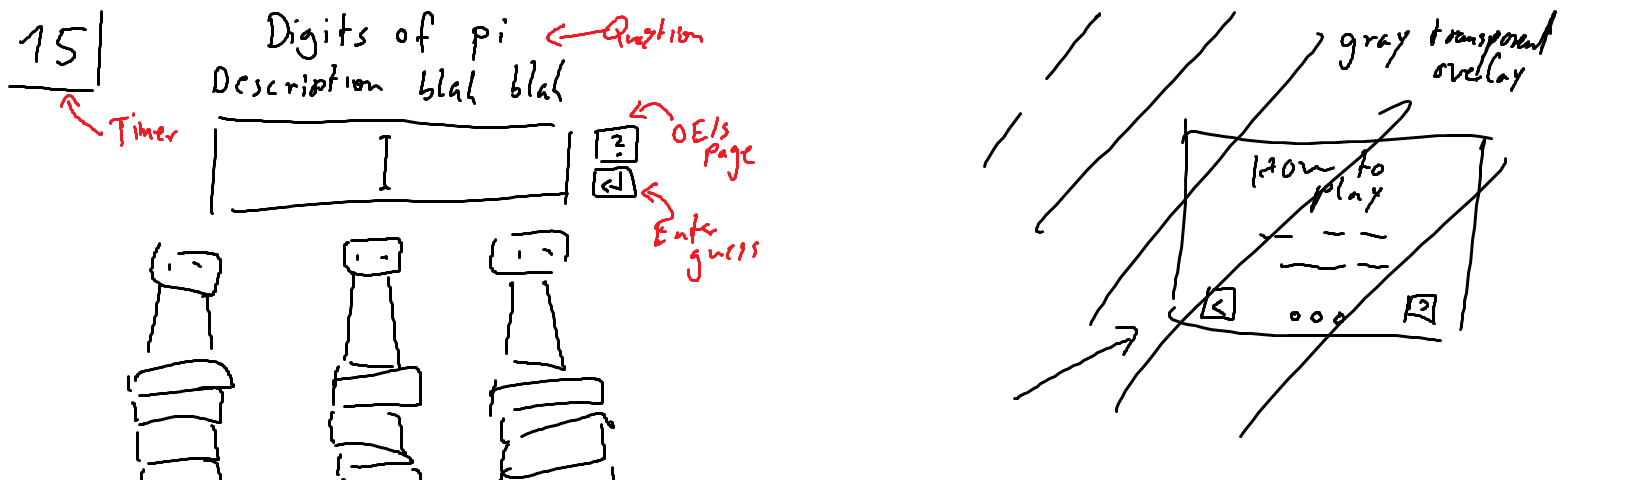 15
Digits of pi
Question
Description blah blah
Timer
?
OEIS
page
Enter
guess
gray transparent
overlay
How to
play
<
?